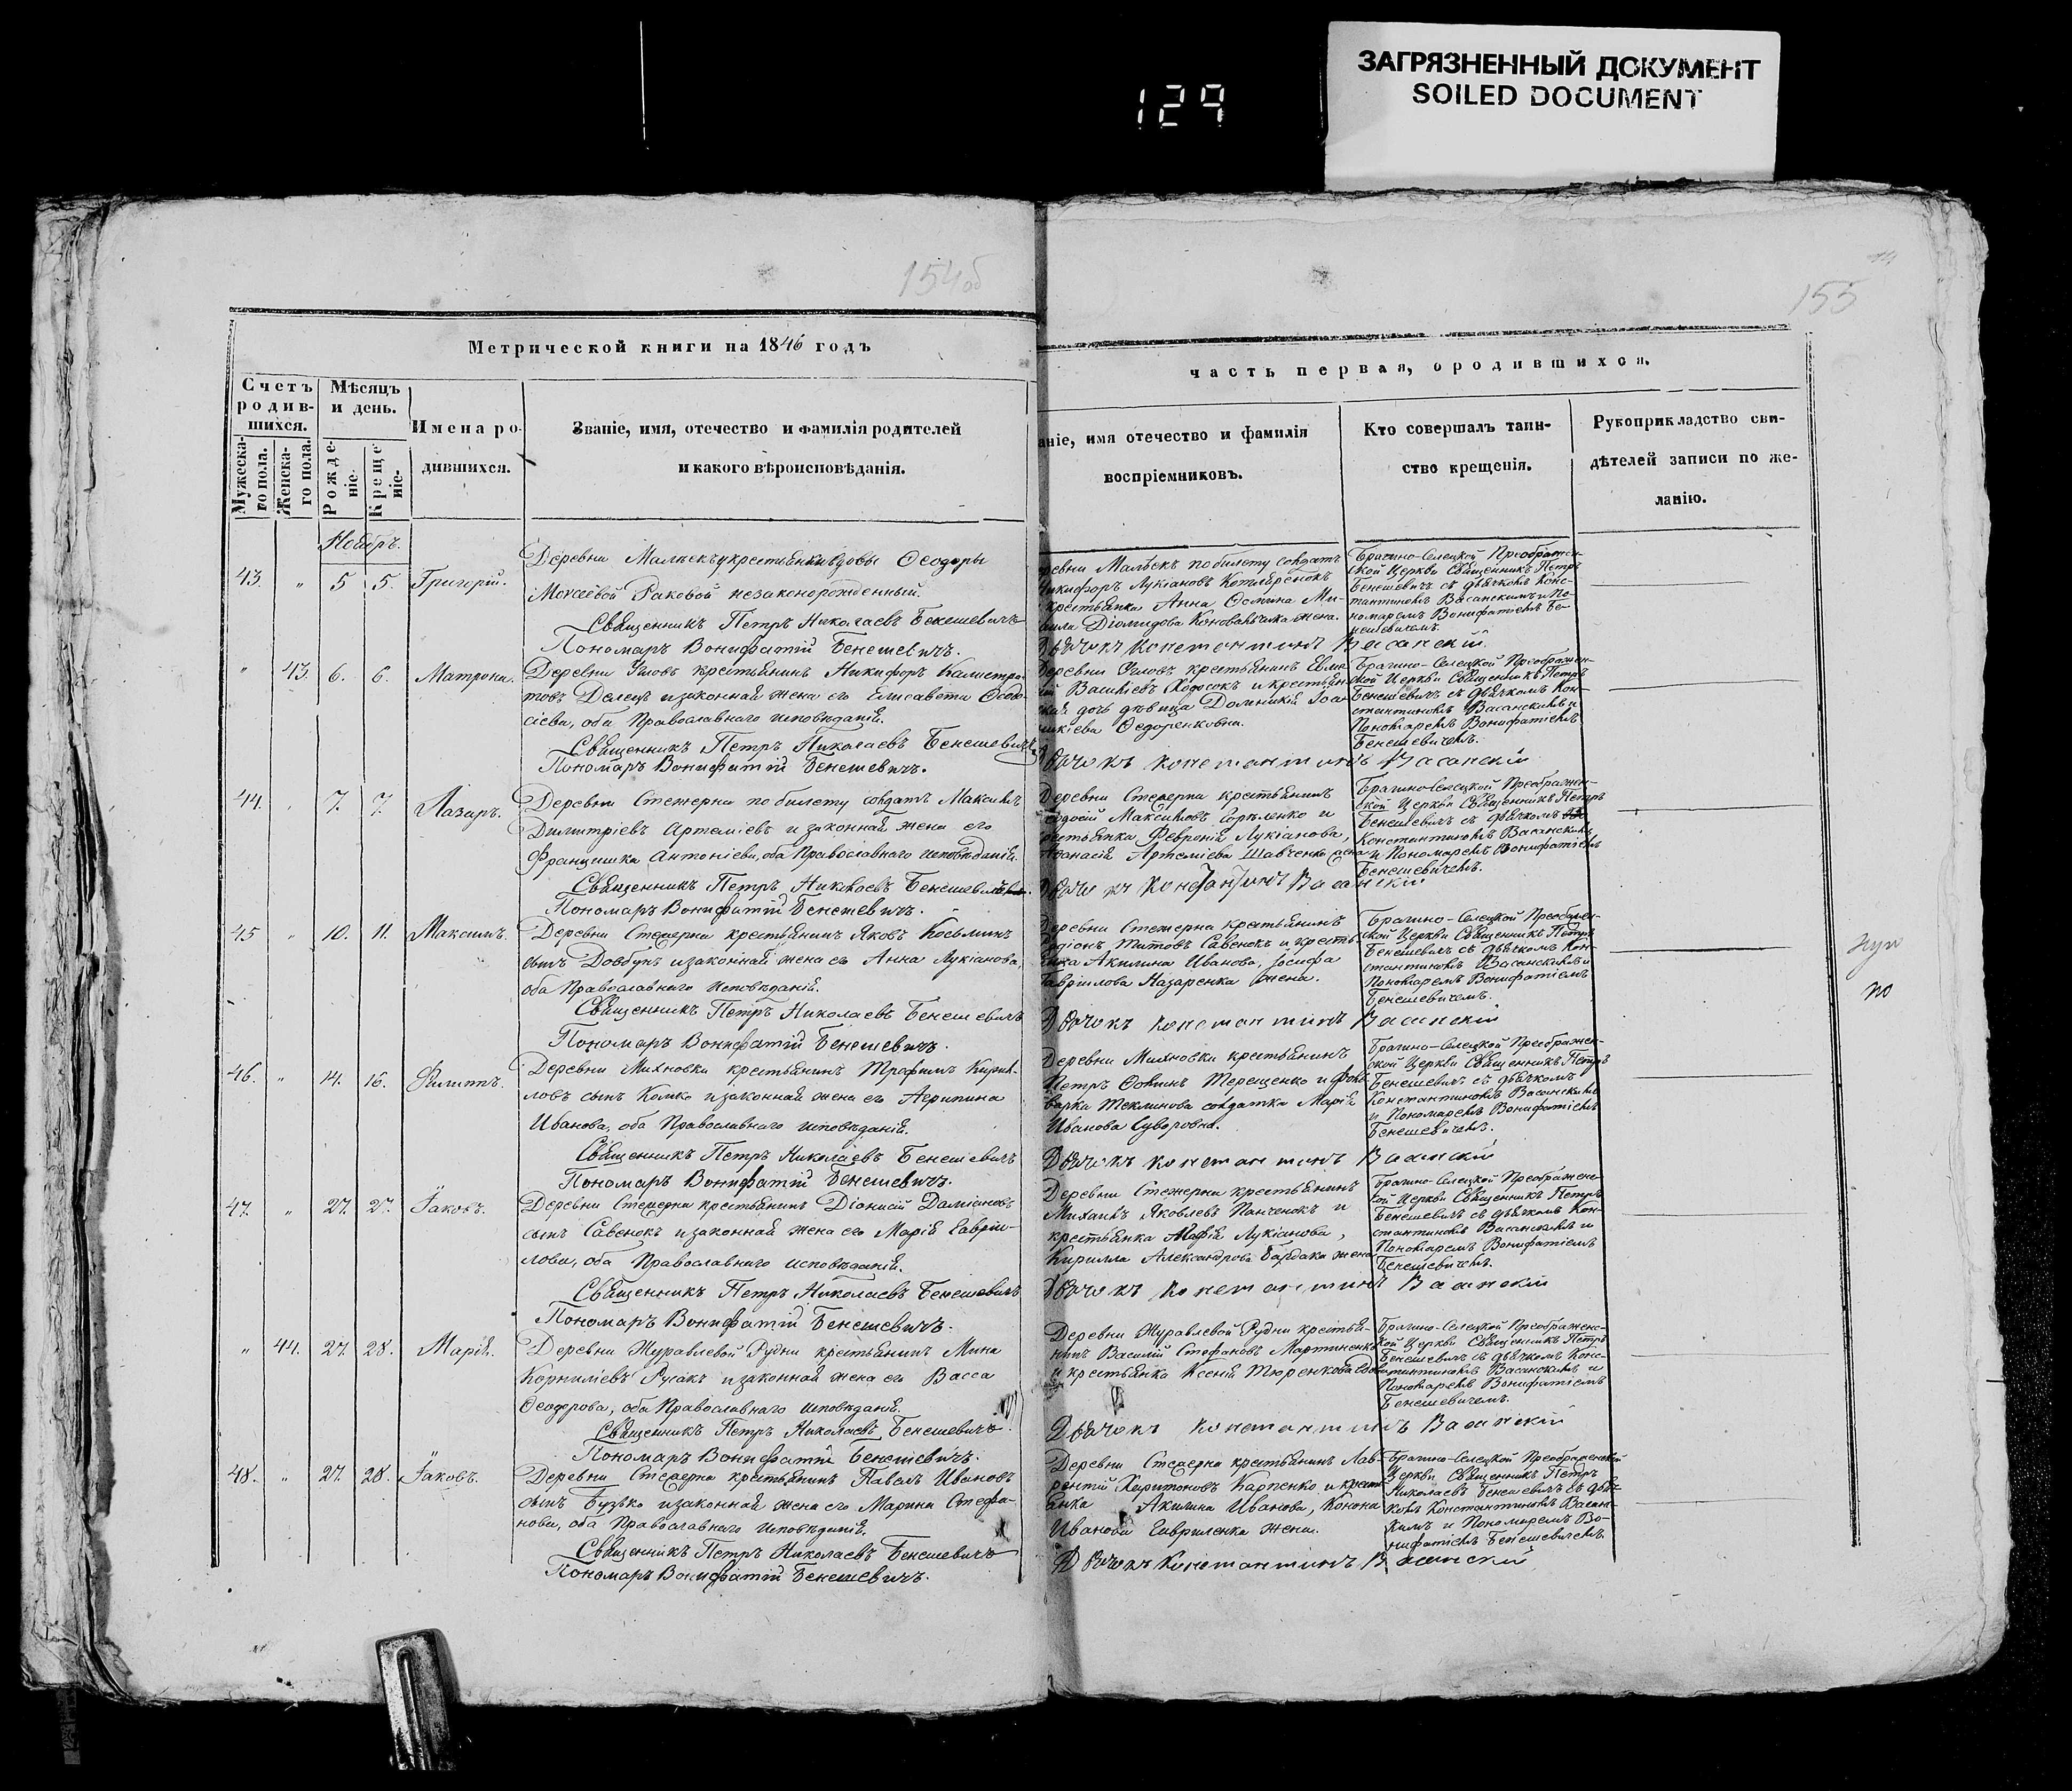 ЗАГРЯЗНЕННЫЙ ДОКУМЕНТ
SOILED DOCUMENT
129
154об
155
Метрической книги на 1846 годъ
Счетъ родив-шихся.
Мѣсяцъ и день.
Мужеска-го пола.
Женска-го пола.
Рожде-ніе.
Креще-ніе.
Имена ро-дившихся.
Званіе, имя, отечество и фамилія родителей
и какого вѣроисповѣданія.
часть первая, ородившихся.
аніе, имя отечество и фамилія
воспріемниковъ.
Кто совершалъ таин-
ство крещенія.
Рукоприкладство сви-
дѣтелей записи по же-
ланію.
Ноябрь.
43. " 5 5. Григорій.
Деревни Малѣекъ крестьянки вдовы Ѳеодоры
Моѵсеевой Раковой незаконорожденный.
Священникъ Петръ Николаевъ Бенешевичъ
Пономарь Вонифатій Бенешевичъ.
Малѣекъ по билету солдатъ
Никифоръ Лукіановъ
крестьянка Анна
Діомидова жена.
Дьячокъ Константинъ Васанскій
Брагино-Селецкой Преображен-
ской Церкви Священникъ Петръ
Бенешевичъ съ дьячкомъ Конс-
тантиномъ Васанскимъ и По-
номаремъ Вонифатіемъ Бе-
нешевичемъ.
" 43. 6. 6. Матрона.
Деревни Угловъ крестьянинъ Никифоръ Калистра-
товъ Далецъ и законная жена его Елисавета Ѳеодо-
сіева, оба Православнаго исповѣданія.
Священникъ Петръ Николаевъ Бенешевичъ
Пономарь Вонифатій Бенешевичъ.
Деревни Угловъ крестьянинъ
Василіевъ Ходосокъ и крестьян-
ская дочь дѣвица Домникія Іоан-
никіева Ѳедоренковна.
Дьячокъ Константинъ Васанскій
Брагино-Селецкой Преображен-
ской Церкви Священникъ Петръ
Бенешевичъ съ дьячкомъ Кон-
стантиномъ Васанскимъ и
Пономаремъ Вонифатіемъ
Бенешевичемъ.
44. " 7. 7. Лазарь.
Деревни Стежерна по билету солдатъ Максимъ
Димитріевъ Артеміевъ и законная жена его
Францишка Антоніева, оба Православнаго исповѣданія.
Священникъ Петръ Николаевъ Бенешевичъ
Пономарь Вонифатій Бенешевичъ.
Деревни Стежерна крестьянинъ
Максимовъ Горѣленко и
крестьянка Февронія Лукіанова,
Аѳанасія Артеміева Шавченка жена
Дьячокъ Константинъ Васанскій
Брагино-Селецкой Преображен-
ской Церкви Священникъ Петръ
Бенешевичъ съ дьячкомъ
Константиномъ Васанскимъ
и Пономаремъ Вонифатіемъ
Бенешевичемъ.
45 " 10. 11. Максимъ.
Деревни Стежерна крестьянинъ Яковъ Косьминъ
сынъ Довбунъ и законная жена его Анна Лукіанова,
оба Православнаго исповѣданія.
Священникъ Петръ Николаевъ Бенешевичъ
Пономарь Вонифатій Бенешевичъ.
Деревни Стежерна крестьянинъ
Родіонъ Титовъ Савенокъ и кресть-
янка Акилина Иванова, Іосифа
Гавріилова Назаренка жена.
Дьячокъ Константинъ Васанскій
Брагино-Селецкой Преображен-
ской Церкви Священникъ Петръ
Бенешевичъ съ дьячкомъ Кон-
стантиномъ Васанскимъ и
Пономаремъ Вонифатіемъ
Бенешевичемъ.
46. " 14. 16. Филиппъ.
Деревни Михновки крестьянинъ Трофимъ Кирил-
ловъ сынъ Комко и законная жена его Агрипина
Иванова, оба Православнаго исповѣданія.
Священникъ Петръ Николаевъ Бенешевичъ
Пономарь Вонифатій Бенешевичъ.
Деревни Михновки крестьянинъ
Петръ Ѳоминъ Терещенко и
солдатка Марія
Иванова Суворовна.
Дьячокъ Константинъ Васанскій
Брагино-Селецкой Преображен-
ской Церкви Священникъ Петръ
Бенешевичъ съ дьячкомъ
Константиномъ Васанскимъ
и Пономаремъ Вонифатіемъ
Бенешевичемъ.
47. " 27. 27. Іаковъ.
Деревни Стежерна крестьянинъ Діонисій Даміановъ
сынъ Савенокъ и законная жена его Марія Гавріи-
лова, оба Православнаго исповѣданія.
Священникъ Петръ Николаевъ Бенешевичъ
Пономарь Вонифатій Бенешевичъ.
Деревни Стежерна крестьянинъ
Михаилъ Яковлевъ Панченокъ и
крестьянка Лукіанова,
Кирилла Александрова Бардака жена
Дьячокъ Константинъ Васанскій
Брагино-Селецкой Преображенс-
кой Церкви Священникъ Петръ
Бенешевичъ съ дьячкомъ Кон-
стантиномъ Васанскимъ и
Пономаремъ Вонифатіемъ
Бенешевичемъ.
" 44. 27. 28. Марія.
Деревни Журавлевой Рудни крестьянинъ Мина
Корниліевъ Русакъ и законная жена его Васса
Ѳеодорова, оба Православнаго исповѣданія.
Священникъ Петръ Николаевъ Бенешевичъ
Пономарь Вонифатій Бенешевичъ.
Деревни Журавлевой Рудни крестья-
нинъ Василій Стефановъ Мартиненко
и крестьянка Ксенія Тюренкова
Дьячокъ Константинъ Васанскій
Брагино-Селецкой Преображенс-
кой Церкви Священникъ Петръ
Бенешевичъ съ дьячкомъ Конс-
тантиномъ Васанскимъ и
Пономаремъ Вонифатіемъ
Бенешевичемъ.
48. " 27. 28. Іаковъ.
Деревни Стежерна крестьянинъ Павелъ Ивановъ
сынъ Бузько и законная жена его Марина Стефа-
нова, оба Православнаго исповѣданія.
Священникъ Петръ Николаевъ Бенешевичъ
Пономарь Вонифатій Бенешевичъ.
Деревни Стежерна крестьянинъ Лав-
рентій Харитоновъ Карпенко и крестья-
нка Акилина Иванова, Конона
Иванова Гавриленка жена.
Дьячокъ Константинъ Васанскій
Брагино-Селецкой Преображенской
Церкви Священникъ Петръ
Николаевъ Бенешевичъ съ дьяч-
комъ Константиномъ Васанс-
кимъ и Пономаремъ Во-
нифатіемъ Бенешевичемъ.